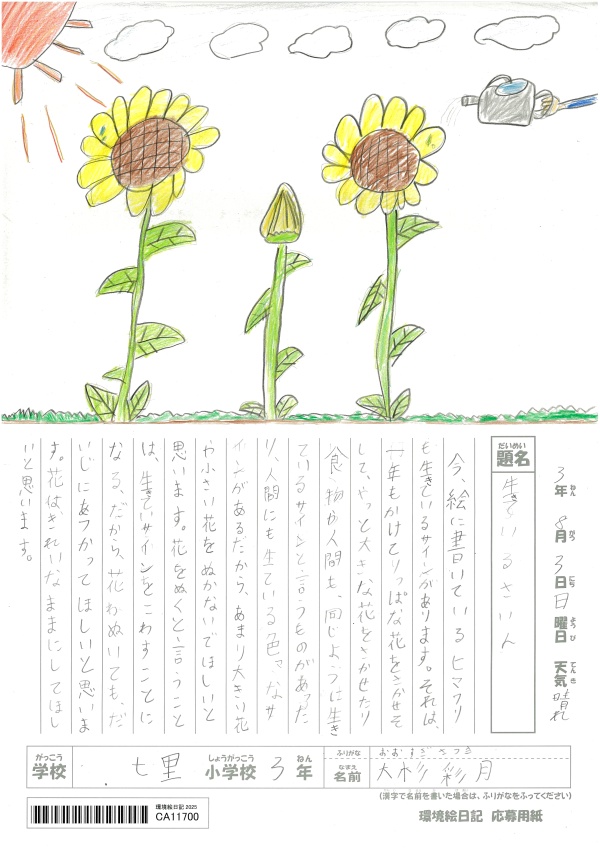 3年 8月 3日 日曜日 天気 晴れ
ねん がつ にち ようび てんき
だいめい
題名
生きているさいん
今、絵に書いているヒマワリ
も生きているサインがあります。それは、
一年もかけてりっぱな花をさかせそ
して、やっと大きな花をさかせたり
食べ物か人間も、同じように生き
ているサインと言うものがあった
り、人間にも生ている色々なサ
インがあるだから、あまり大きい花
や小さい花をぬかないでほしいと
思います。花をぬくと言うこと
は、生きているサインをこわすことに
なる、だから、花わぬいても、だ
いじにあつかってほしいと思いま
す。花は、きれいなままにしてほし
いと思います。
がっこう しょうがっこう ねん
学校 七里 小学校 3年
ふりがな おおすぎ さつき
なまえ
名前 大杉 彩月
(漢字で名前を書いた場合は、ふりがなをふってください)
環境絵日記 2025
CA11700
環境絵日記 応募用紙